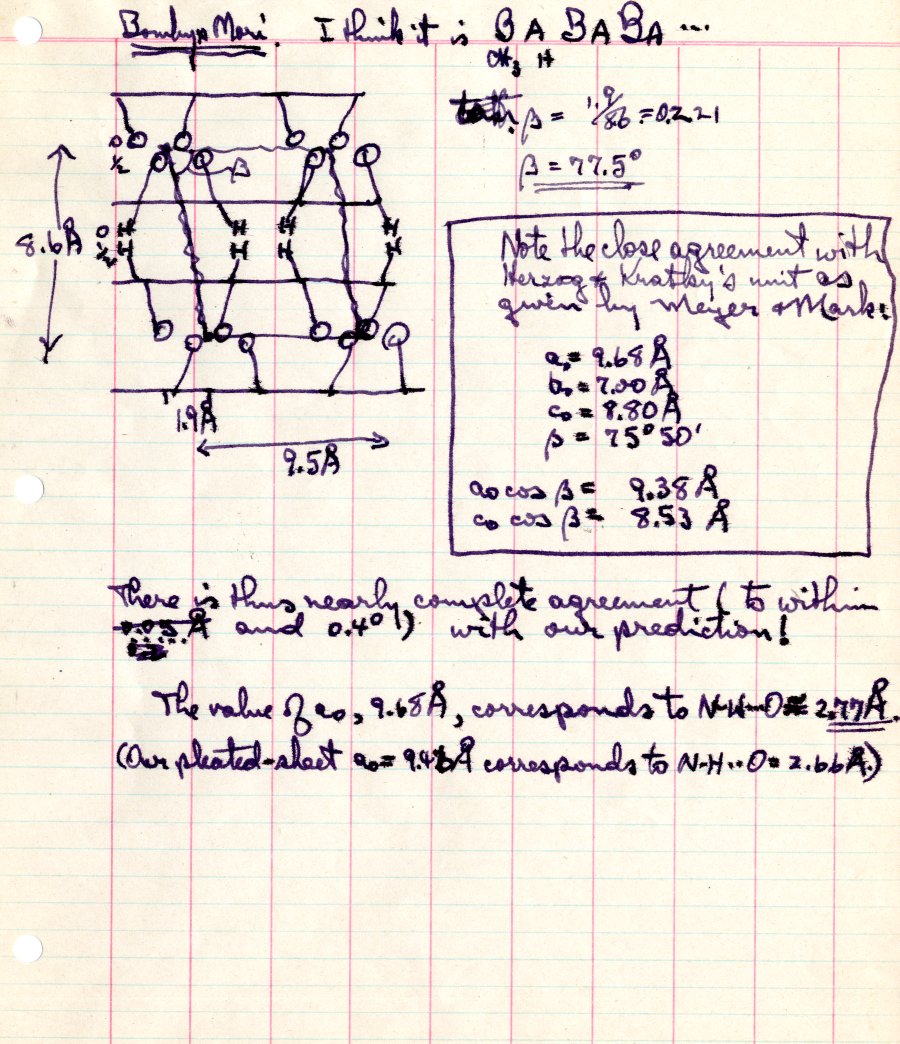 Bombyx Mori. I think it is B A B A B A ...
CH3 H
β = 1.9/8.6 = 0.221
β = 77.5°
O
½
β
8.6Å
O H H H H
½ H H H H
1.9Å
9.5Å
Note the close agreement with
Herzog & Kratky's unit as
given by Meyer & Mark:
a0 = 9.68 Å
b0 = 7.00 Å
c0 = 8.80 Å
β = 75° 50'
a0 cos β = 9.38 Å
c0 cos β = 8.53 Å
There is thus nearly complete agreement (to within
Å and 0.4°!) with our prediction!
The value of a0, 9.68Å, corresponds to N-H--O = 2.77Å.
(Our pleated-sheet a0 = Å corresponds to N-H--O = 2.66Å.)